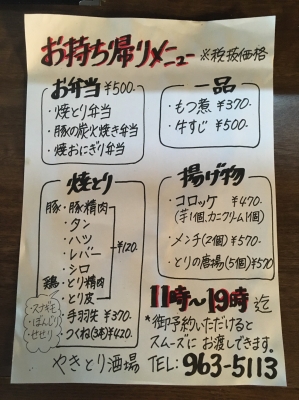 お持ち帰りメニュー ※税抜価格
お弁当 ¥500-
・焼とり弁当
・豚の炭火焼き弁当
・焼おにぎり弁当
一品
・もつ煮 ¥370-
・牛すじ ¥500-
焼とり
豚・豚精肉
・タン
・ハツ
・レバー
・シロ
鶏・とり精肉
・とり皮
¥120-
スナギモ
ぼんじり
せせり
・手羽先 ¥370-
・つくね(3本)¥420-
揚げ物
・コロッケ ¥470-
(芋1個、カニクリーム1個)
・メンチ(2個) ¥570-
・とりの唐揚(5個)¥570
11時〜19時迄
*御予約いただけると
スムーズにお渡しできます。
やきとり酒場 TEL:963-5113